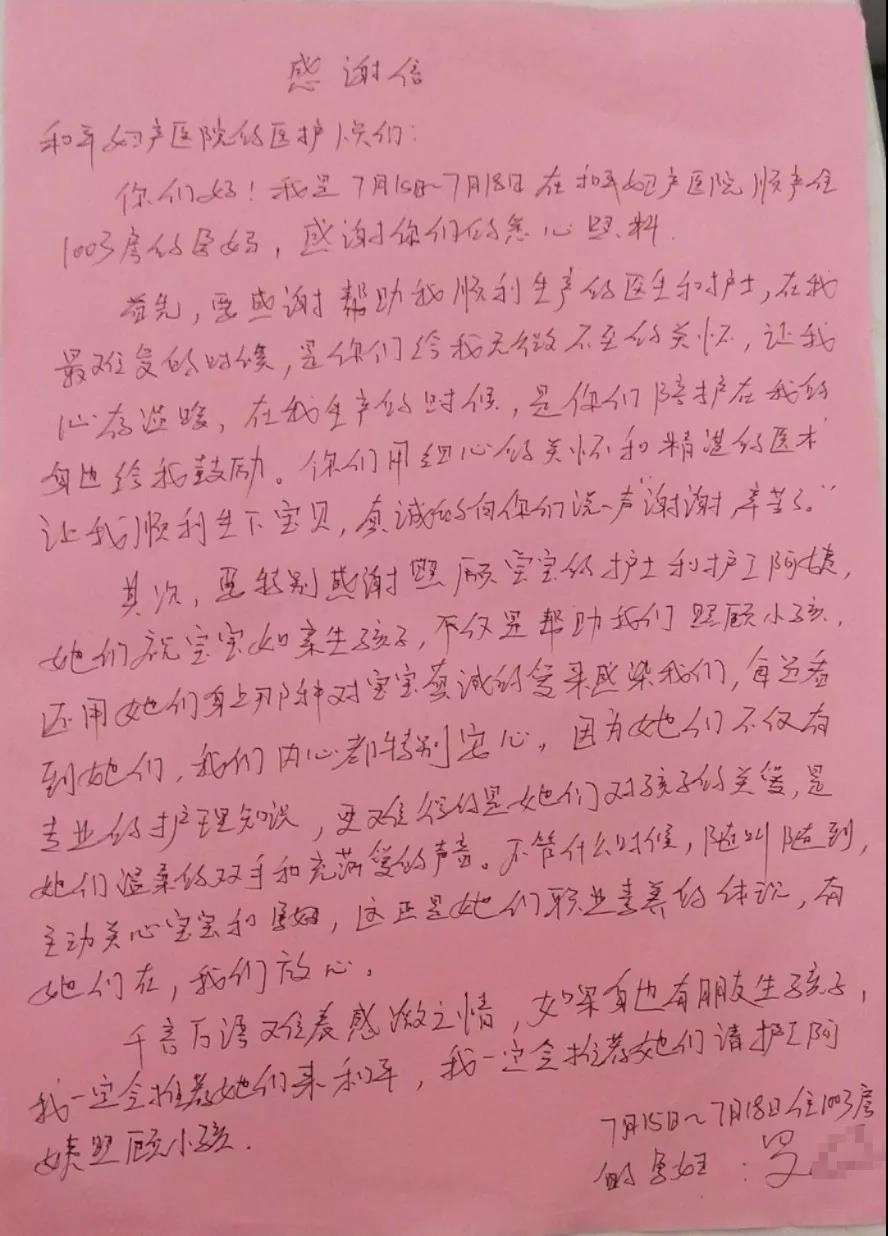 感谢信
和平妇产医院的医护人员们：
你们好！我是7月15日~7月18日在和平妇产医院顺产住
1003房的孕妇，感谢你们的悉心照料.
首先，要感谢帮助我顺利生产的医生和护士，在我
最难受的时候，是你们给我无微不至的关怀，让我
心存温暖，在我生产的时候，是你们陪护在我的
身边给我鼓励。你们用细心的关怀和精湛的医术
让我顺利生下宝贝，真诚的向你们说一声“谢谢，辛苦了。”
其次，要特别感谢照顾宝宝的护士和护工阿姨，
她们视宝宝如亲生孩子，不仅是帮助我们照顾小孩，
还用她们身上那种对宝宝真诚的爱来感染我们，每近看
到她们，我们内心都特别安心。因为她们不仅有
专业的护理知识，更难得的是她们对孩子的关爱，是
她们温柔的双手和充满爱的声音。不管什么时候，随叫随到，
主动关心宝宝和孕妇，这正是她们职业素养的体现，有
她们在，我们放心。
千言万语难表感激之情，如果身边有朋友生孩子，
我一定会推荐她们来和平，我一定会推荐她们请护工阿
姨照顾小孩.
7月15日~7月18日住1003房
的孕妇：罗